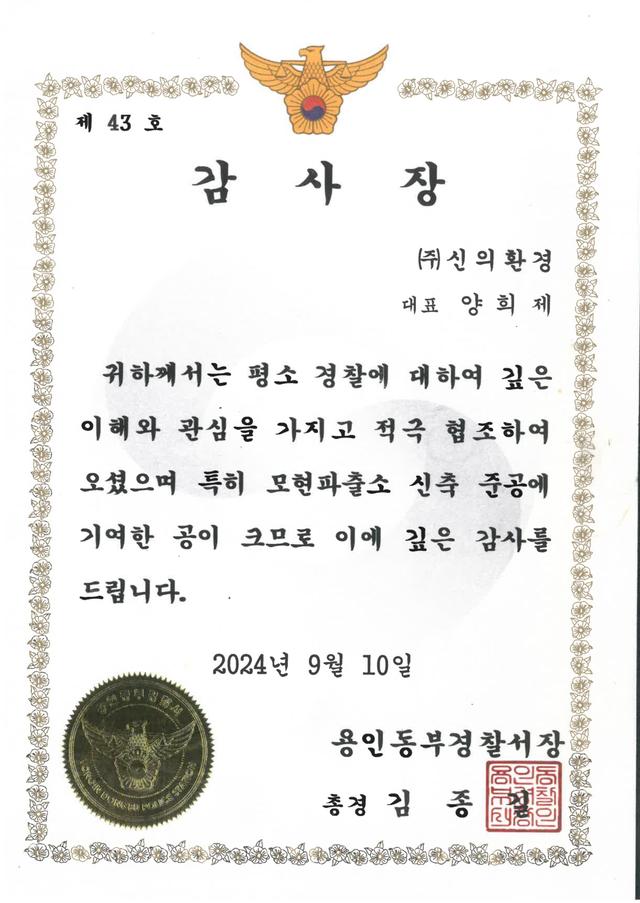 제 43 호
감 사 장
㈜신의환경
대표 양 희 제
귀하께서는 평소 경찰에 대하여 깊은
이해와 관심을 가지고 적극 협조하여
오셨으며 특히 모현파출소 신축 준공에
기여한 공이 크므로 이에 깊은 감사를
드립니다.
2024년 9월 10일
용인동부경찰서장
총경 김 종 길